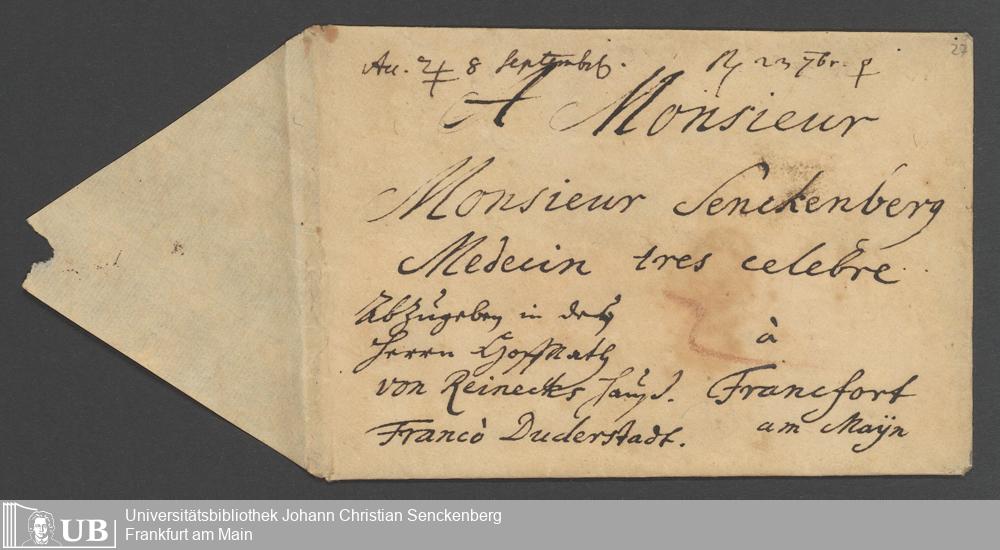 27
Acc. ♃ 8 Septembris. Rp 23 7br. ♀
A Monsieur
Monsieur Senckenberg
Medecin tres celebre
Abzugeben in des
Herrn Hoffrath
von Reinecks Hauß.
Francò Duderstadt.
à
Francfort
am Maÿn
UB
Universitätsbibliothek Johann Christian Senckenberg
Frankfurt am Main